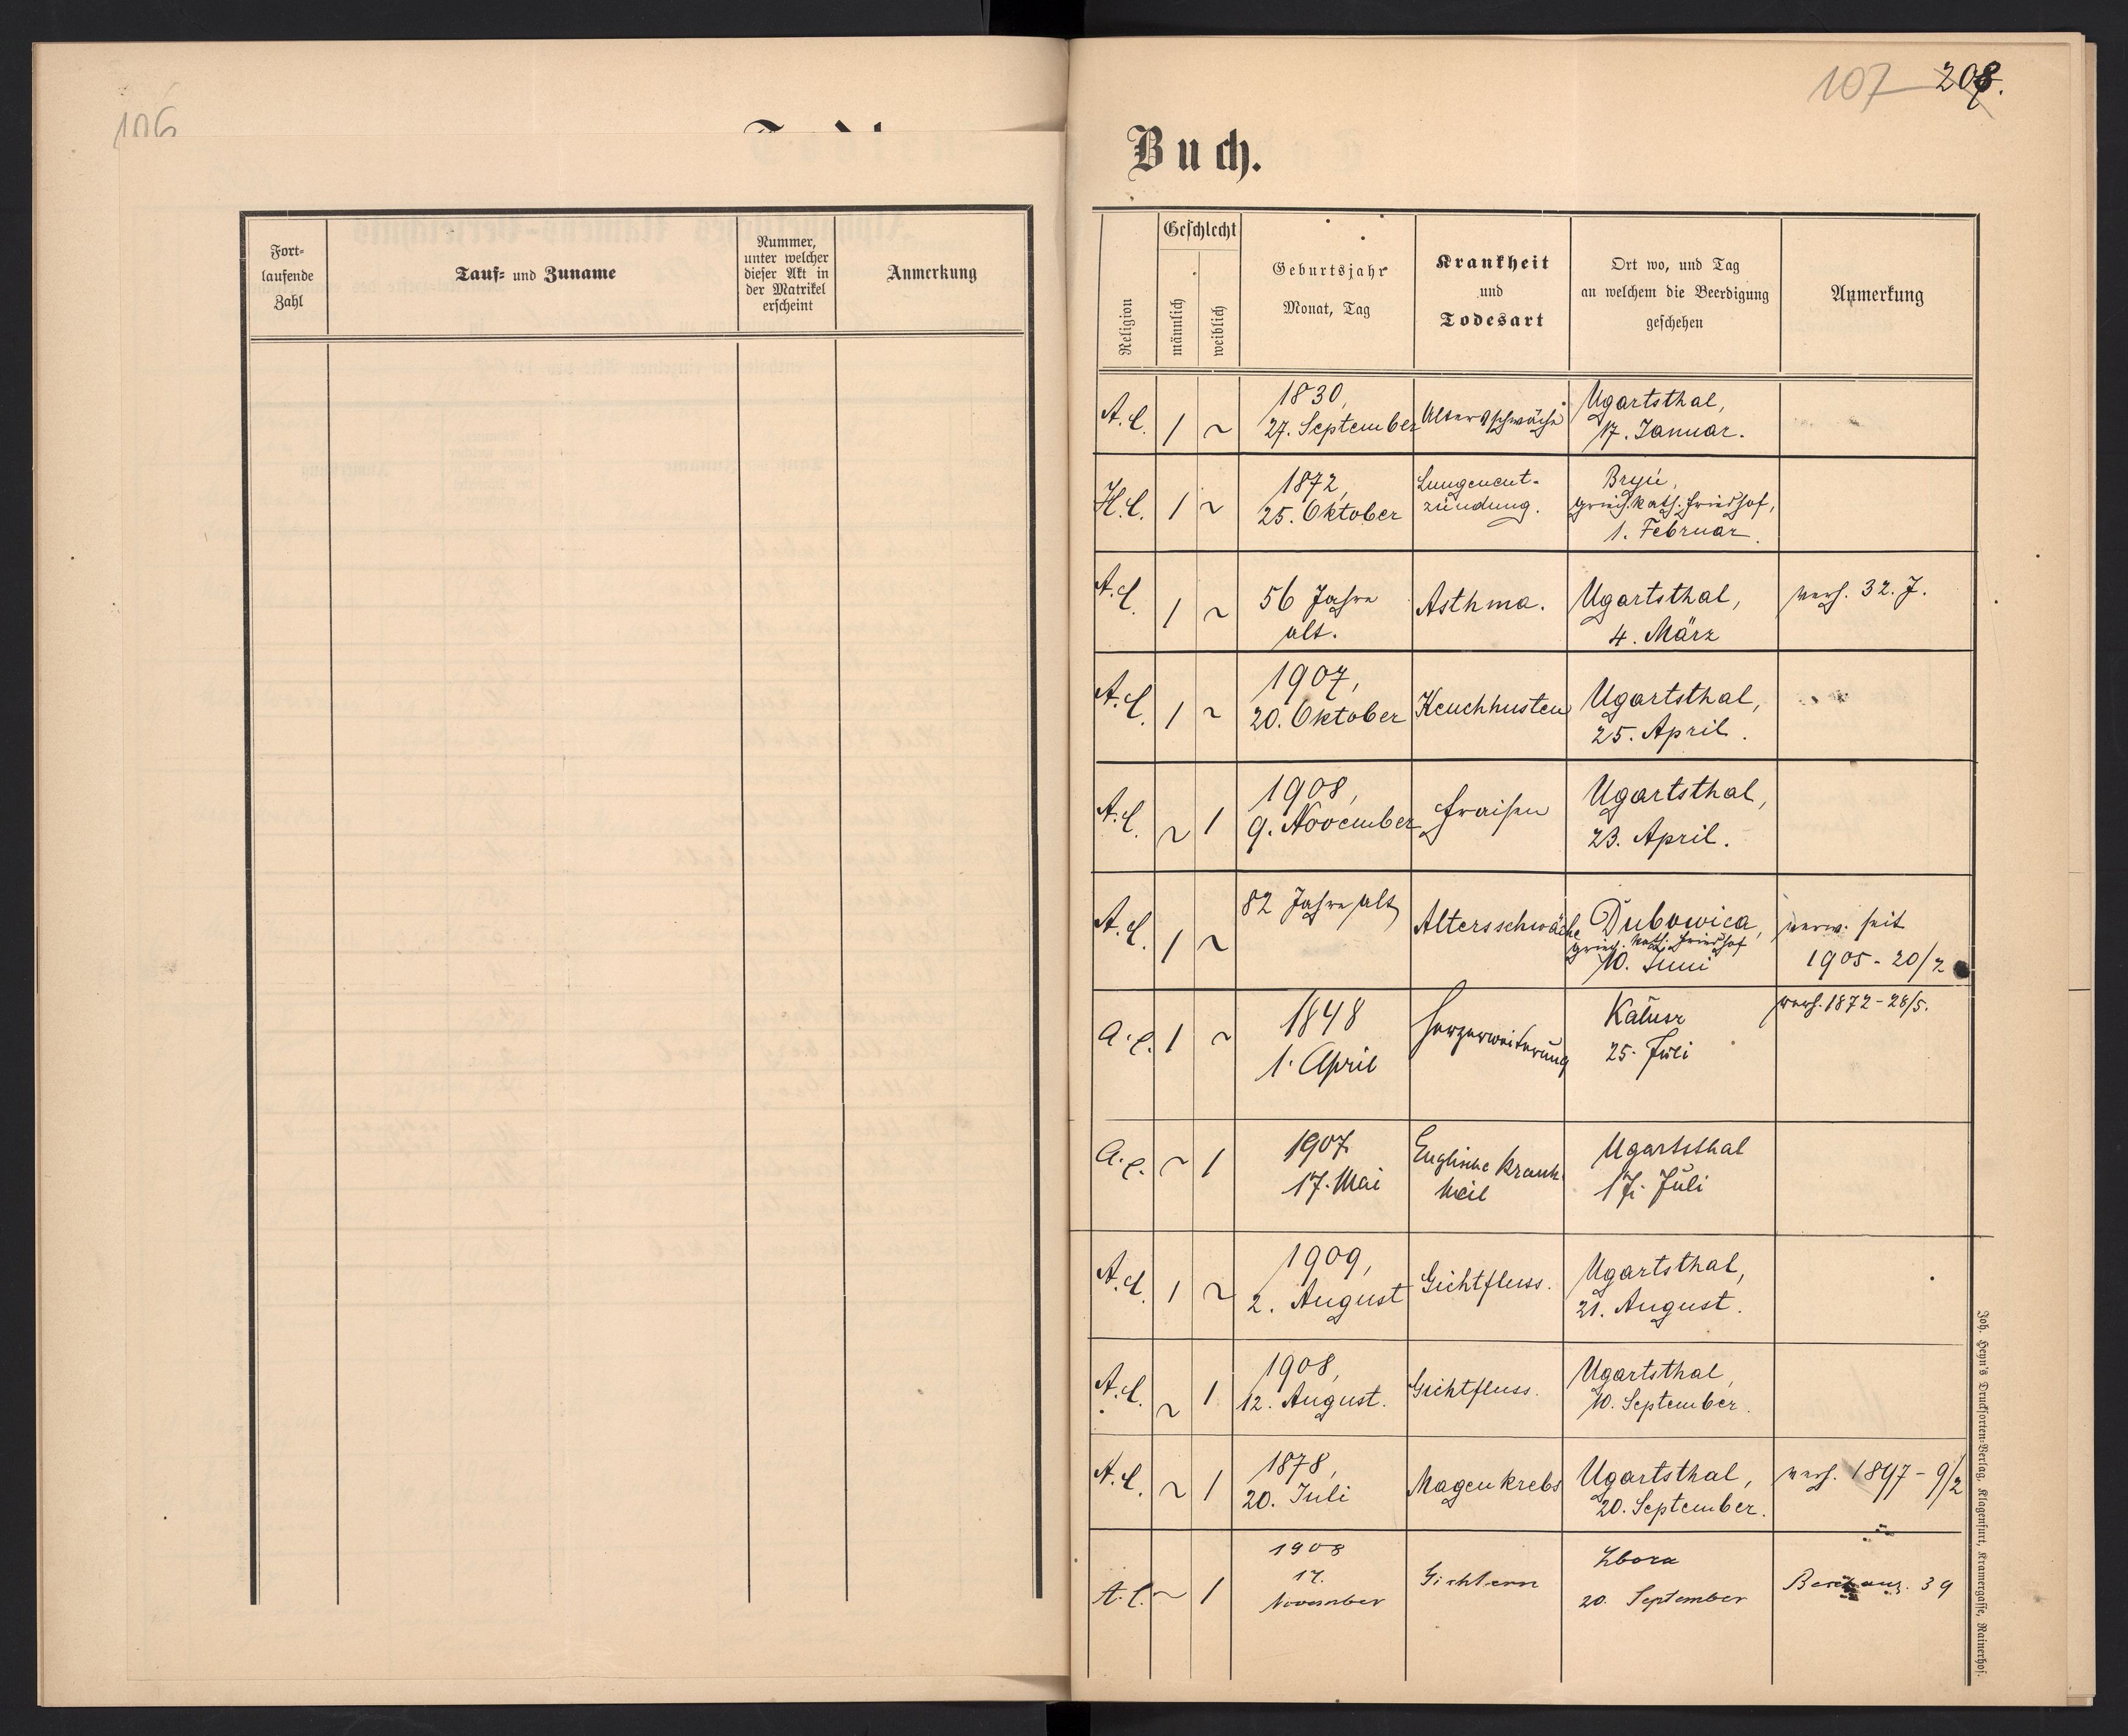 106
Fort-
laufende
Zahl
Tauf- und Zuname
Nummer,
unter welcher
dieser Akt in
der Matrikel
erscheint
Anmerkung
107 208.
Buch.
Religion
Geschlecht
männlich
weiblich
Geburtsjahr
Monat, Tag
Krankheit
und
Todesart
Ort wo, und Tag
an welchem die Beerdigung
geschehen
Anmerkung
A.C. 1 ~ 1830, 27. September Altersschwäche Ugartsthal, 17. Januar.
H.C. 1 ~ 1872, 25. Oktober Lungenent-
zündung. griech. kath. Friedhof, 1. Februar.
A.C. 1 ~ 56 Jahre alt. Asthma. Ugartsthal, 4. März verh. 32. J.
A.C. 1 ~ 1907, 20. Oktober Keuchhusten Ugartsthal, 25. April.
A.C. ~ 1 1908, 9. November Fraisen Ugartsthal, 23. April.
A.C. 1 ~ 82 Jahre alt Altersschwäche Dubowica, griech. kath. Friedhof 10. Juni verw. seit
1905 - 20/2
A.C. 1 ~ 1848 1. April Herzerweiterung Kałusz 25. Juli verh. 1872 - 28/5.
A.C. ~ 1 1907 17. Mai Englische Krank-
heit Ugartsthal 17. Juli
A.C. 1 ~ 1909, 2. August Gichtfluss. Ugartsthal, 21. August.
A.C. ~ 1 1908, 12. August. Gichtfluss. Ugartsthal, 10. September.
A.C. ~ 1 1878, 20. Juli Magenkrebs Ugartsthal, 20. September. verh. 1897 - 9/2
A.C. ~ 1 1908 17. November Gichtern Zbora 20. September 39
Joh. Heyn's Drucksorten-Verlag, Klagenfurt, Kramergasse, Rainerhof.